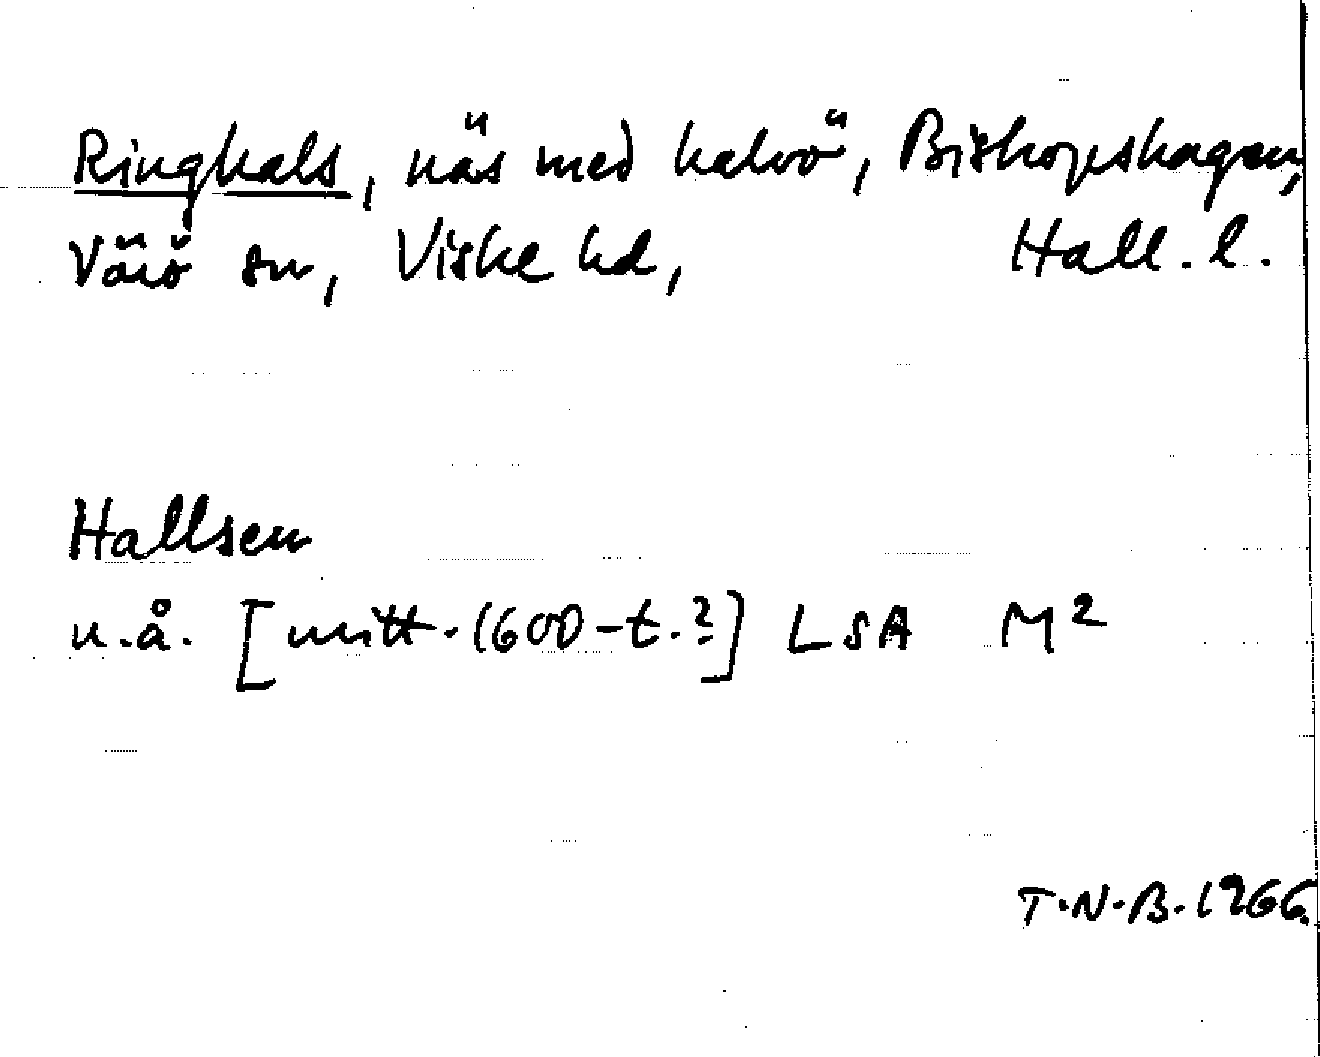 Ringhals, näs med halvö, Biskopshagen,
Värö sn, Viske hd, Hall. l.
Hallsen
u.å. [mitt. 1600-t.?] LSA M2
T.N.B. 1966.